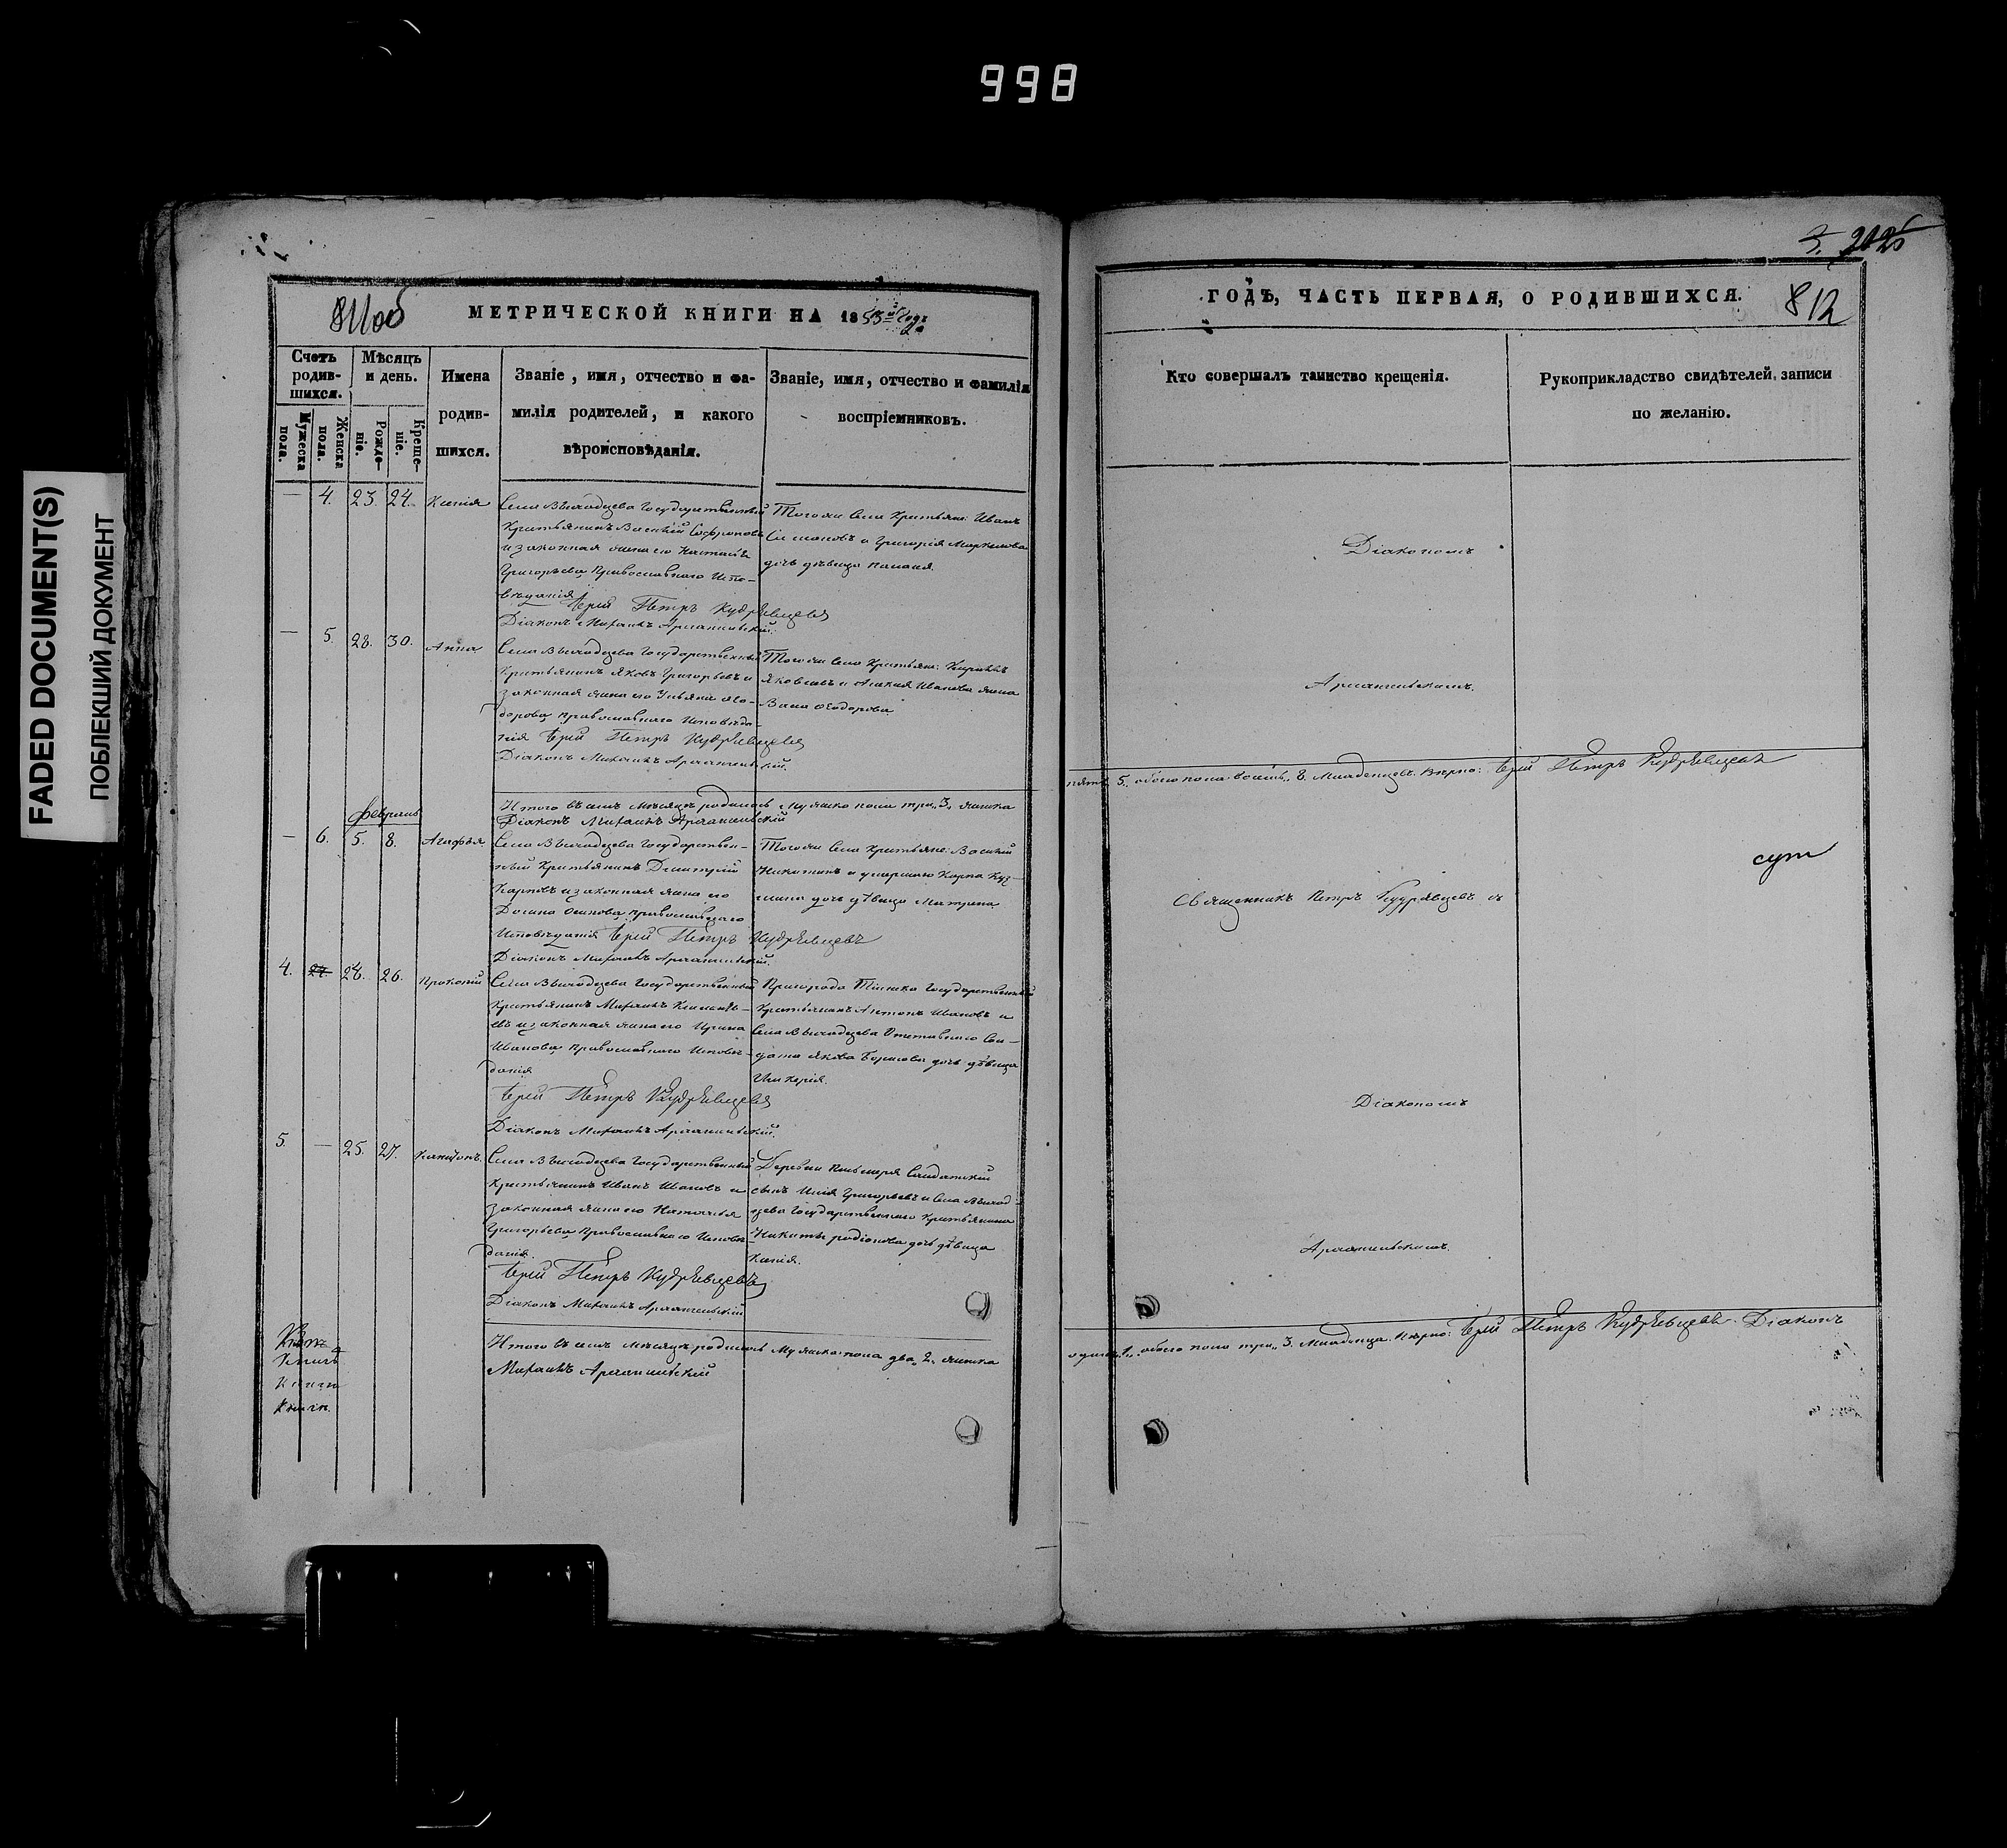 998
FADED DOCUMENT(S)
ПОБЛЕКШИЙ ДОКУМЕНТ
811об
МЕТРИЧЕСКОЙ КНИГИ НА 1853й Годъ
Счетъ родив-шихся.
Мѣсяцъ и день.
Мужеска пола.
Женска пола.
Рожде-ніе.
Креще-ніе.
Имена родив-шихся.
Званіе, имя, отчество и фа-
милія родителей, и какого
вѣроисповѣданія.
Званіе, имя, отчество и фамилія
воспріемниковъ.
— 4. 23. 24. Ксенія
Села Выходцева Государственный
Крестьянинъ Василій Софроновъ
и законная жена его
Григорьева, Православнаго Испо-
вѣданія Іерей Петръ Кудрявцевъ
Діаконъ Михаилъ Архангельскій.
Тогоже Села Крестьяне: Иванъ
и Григорія Маркелова
дочь дѣвица
— 5. 28. 30. Анна
Села Выходцева Государственный
Крестьянинъ Яковъ Григорьевъ и
законная жена его Ульяна Ѳео-
дорова, православнаго Исповѣда-
нія Іерей Петръ Кудрявцевъ
Діаконъ Михаилъ Архангельскій.
Тогоже Села Крестьяне:
Яковлевъ и Иванова жена
Ѳеодорова
Итого въ семъ мѣсяцѣ родилось Мужеско пола три „3„ женска
Діаконъ Михаилъ Архангельскій
Февраль
— 6. 5. 8. Агафья
Села Выходцева Государствен-
ный Крестьянинъ Дмитрій
Карповъ и законная жена его
Осипова, православнаго
Исповѣданія Іерей Петръ Кудрявцевъ
Діаконъ Михаилъ Архангельскій.
Тогоже Села Крестьяне: Василій
Никитинъ и умершаго Карпа Куз-
мина дочь дѣвица Матрена
4. 24. 26. Прокопій
Села Выходцева Государственный
Крестьянинъ Михаилъ Клименть-
евъ и законная жена его Ирина
Иванова, Православнаго Исповѣ-
данія
Іерей Петръ Кудрявцевъ
Діаконъ Михаилъ Архангельскій.
Пригорода Тіинска Государственный
Крестьянинъ Антонъ Ивановъ и
Села Выходцева Отставнаго Сол-
дата Якова Борисова дочь дѣвица
Гликерія.
5. — 25. 27. Капитонъ.
Села Выходцева Государственный
Крестьянинъ Иванъ Ивановъ и
законная жена его Наталья
Григорьева, Православнаго Исповѣ-
данія.
Іерей Петръ Кудрявцевъ
Діаконъ Михаилъ Архангельскій
Деревни Солдатскій
сынъ Илія Григорьевъ и Села Выход-
цева Государственнаго Крестьянина
Никиты Родіонова дочь дѣвица
Ксенія.
Итого въ семъ мѣсяцѣ родилось Мужеско пола два „2„ женска
Михаилъ Архангельскій
ГОДЪ, ЧАСТЬ ПЕРВАЯ, О РОДИВШИХСЯ.
812
Кто совершалъ таинство крещенія.
Рукоприкладство свидѣтелей, записи
по желанію.
Діакономъ
Архангельскимъ.
пять 5„ обоего пола восемь „8 Младенцевъ. Вѣрно: Іерей Петръ Кудрявцевъ
сут
Священникъ Петръ Кудрявцевъ съ
Діакономъ
Архангельскимъ.
одинъ „1„ обоего пола три„ 3. Младенца. Вѣрно: Іерей Петръ Кудрявцевъ. Діаконъ